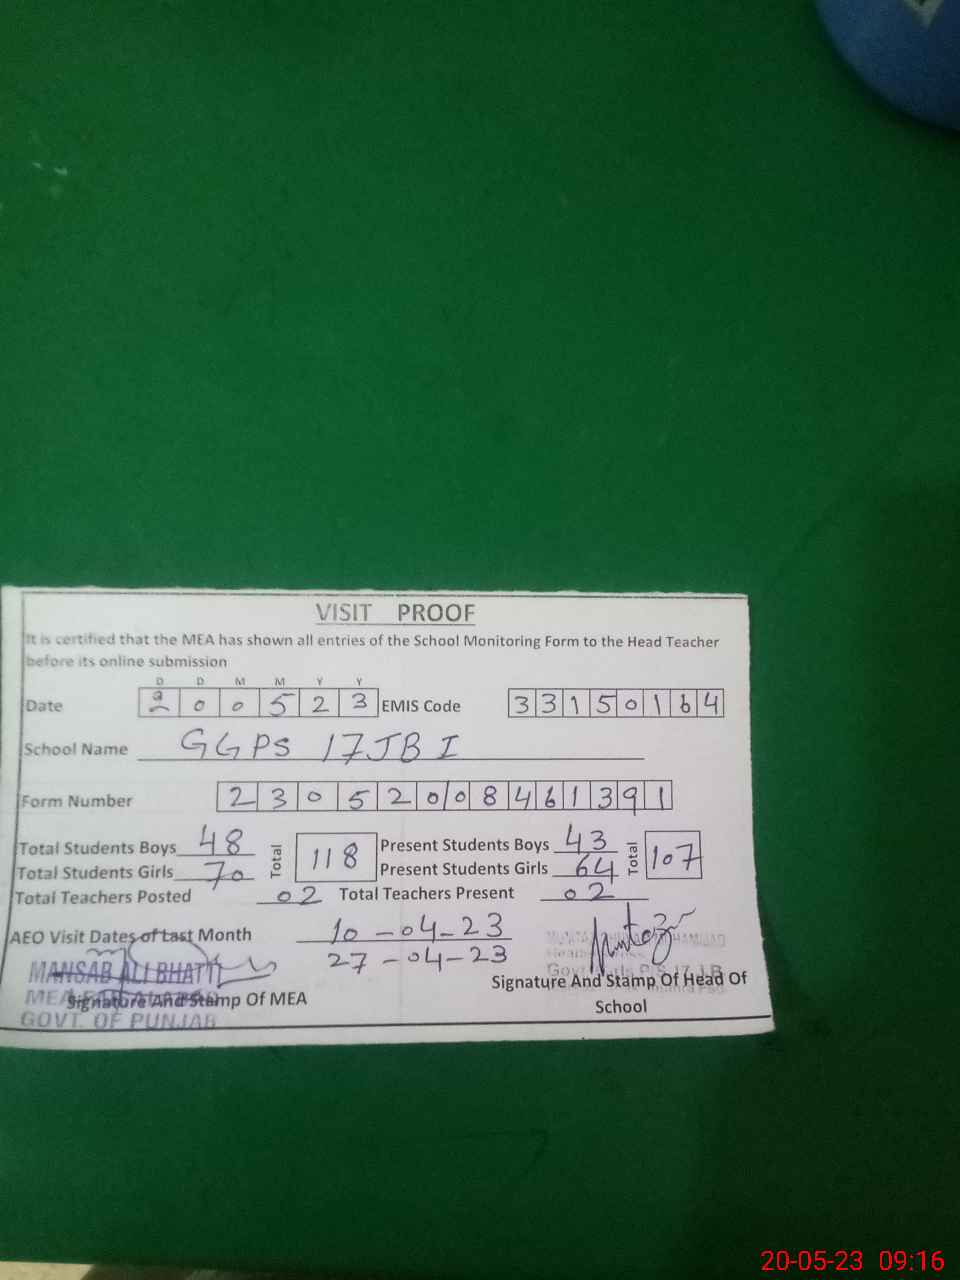 VISIT PROOF
It is certified that the MEA has shown all entries of the School Monitoring Form to the Head Teacher
before its online submission
D D M M Y Y
Date 2 0 0 5 2 3 EMIS Code 3 3 1 5 0 1 6 4
School Name GGPS 17JB I
Form Number 2 3 0 5 2 0 0 8 4 6 1 3 9 1
Total Students Boys 48 Total 118 Present Students Boys 43 Total 107
Total Students Girls 70 Present Students Girls 64
Total Teachers Posted 02 Total Teachers Present 02
AEO Visit Dates of Last Month 10-04-23
27-04-23
MANSAB ALI BHATTI
Signature And Stamp Of MEA
GOVT. OF PUNJAB
Signature And Stamp Of Head Of
School
20-05-23 09:16